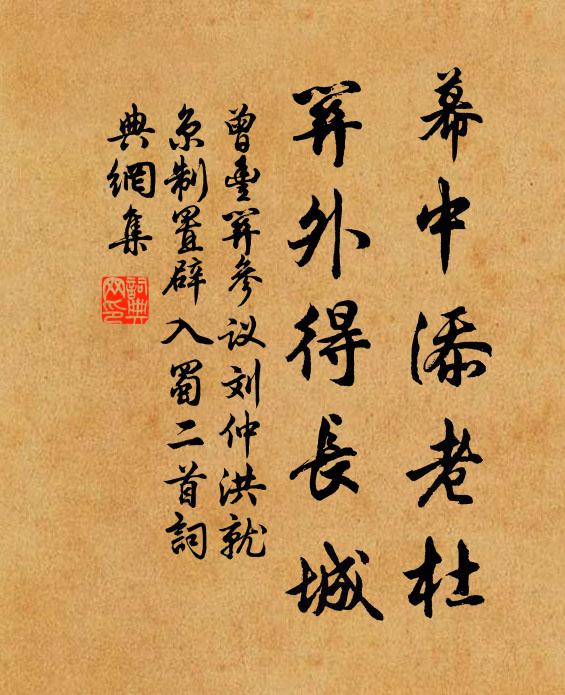 幕中添老杜
筭外得長城
曾豐筭參议刘仲洪就
京制置辟入蜀二首詞
典網集
詞典
网印